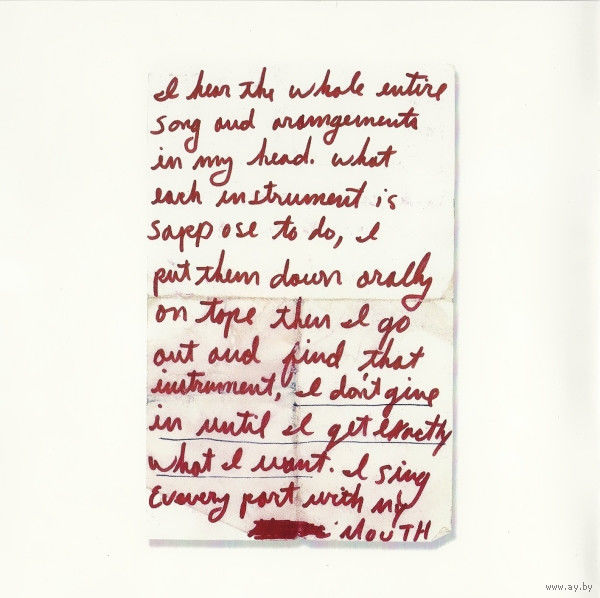 I hear the whole entire
song and arangements
in my head. what
each instrument is
suppose to do, I
put them down orally
on tape then I go
out and find that
instrument, I don't give
in until I get exactly
what I want. I sing
Eevery part with my
MOUTH
www.ay.by